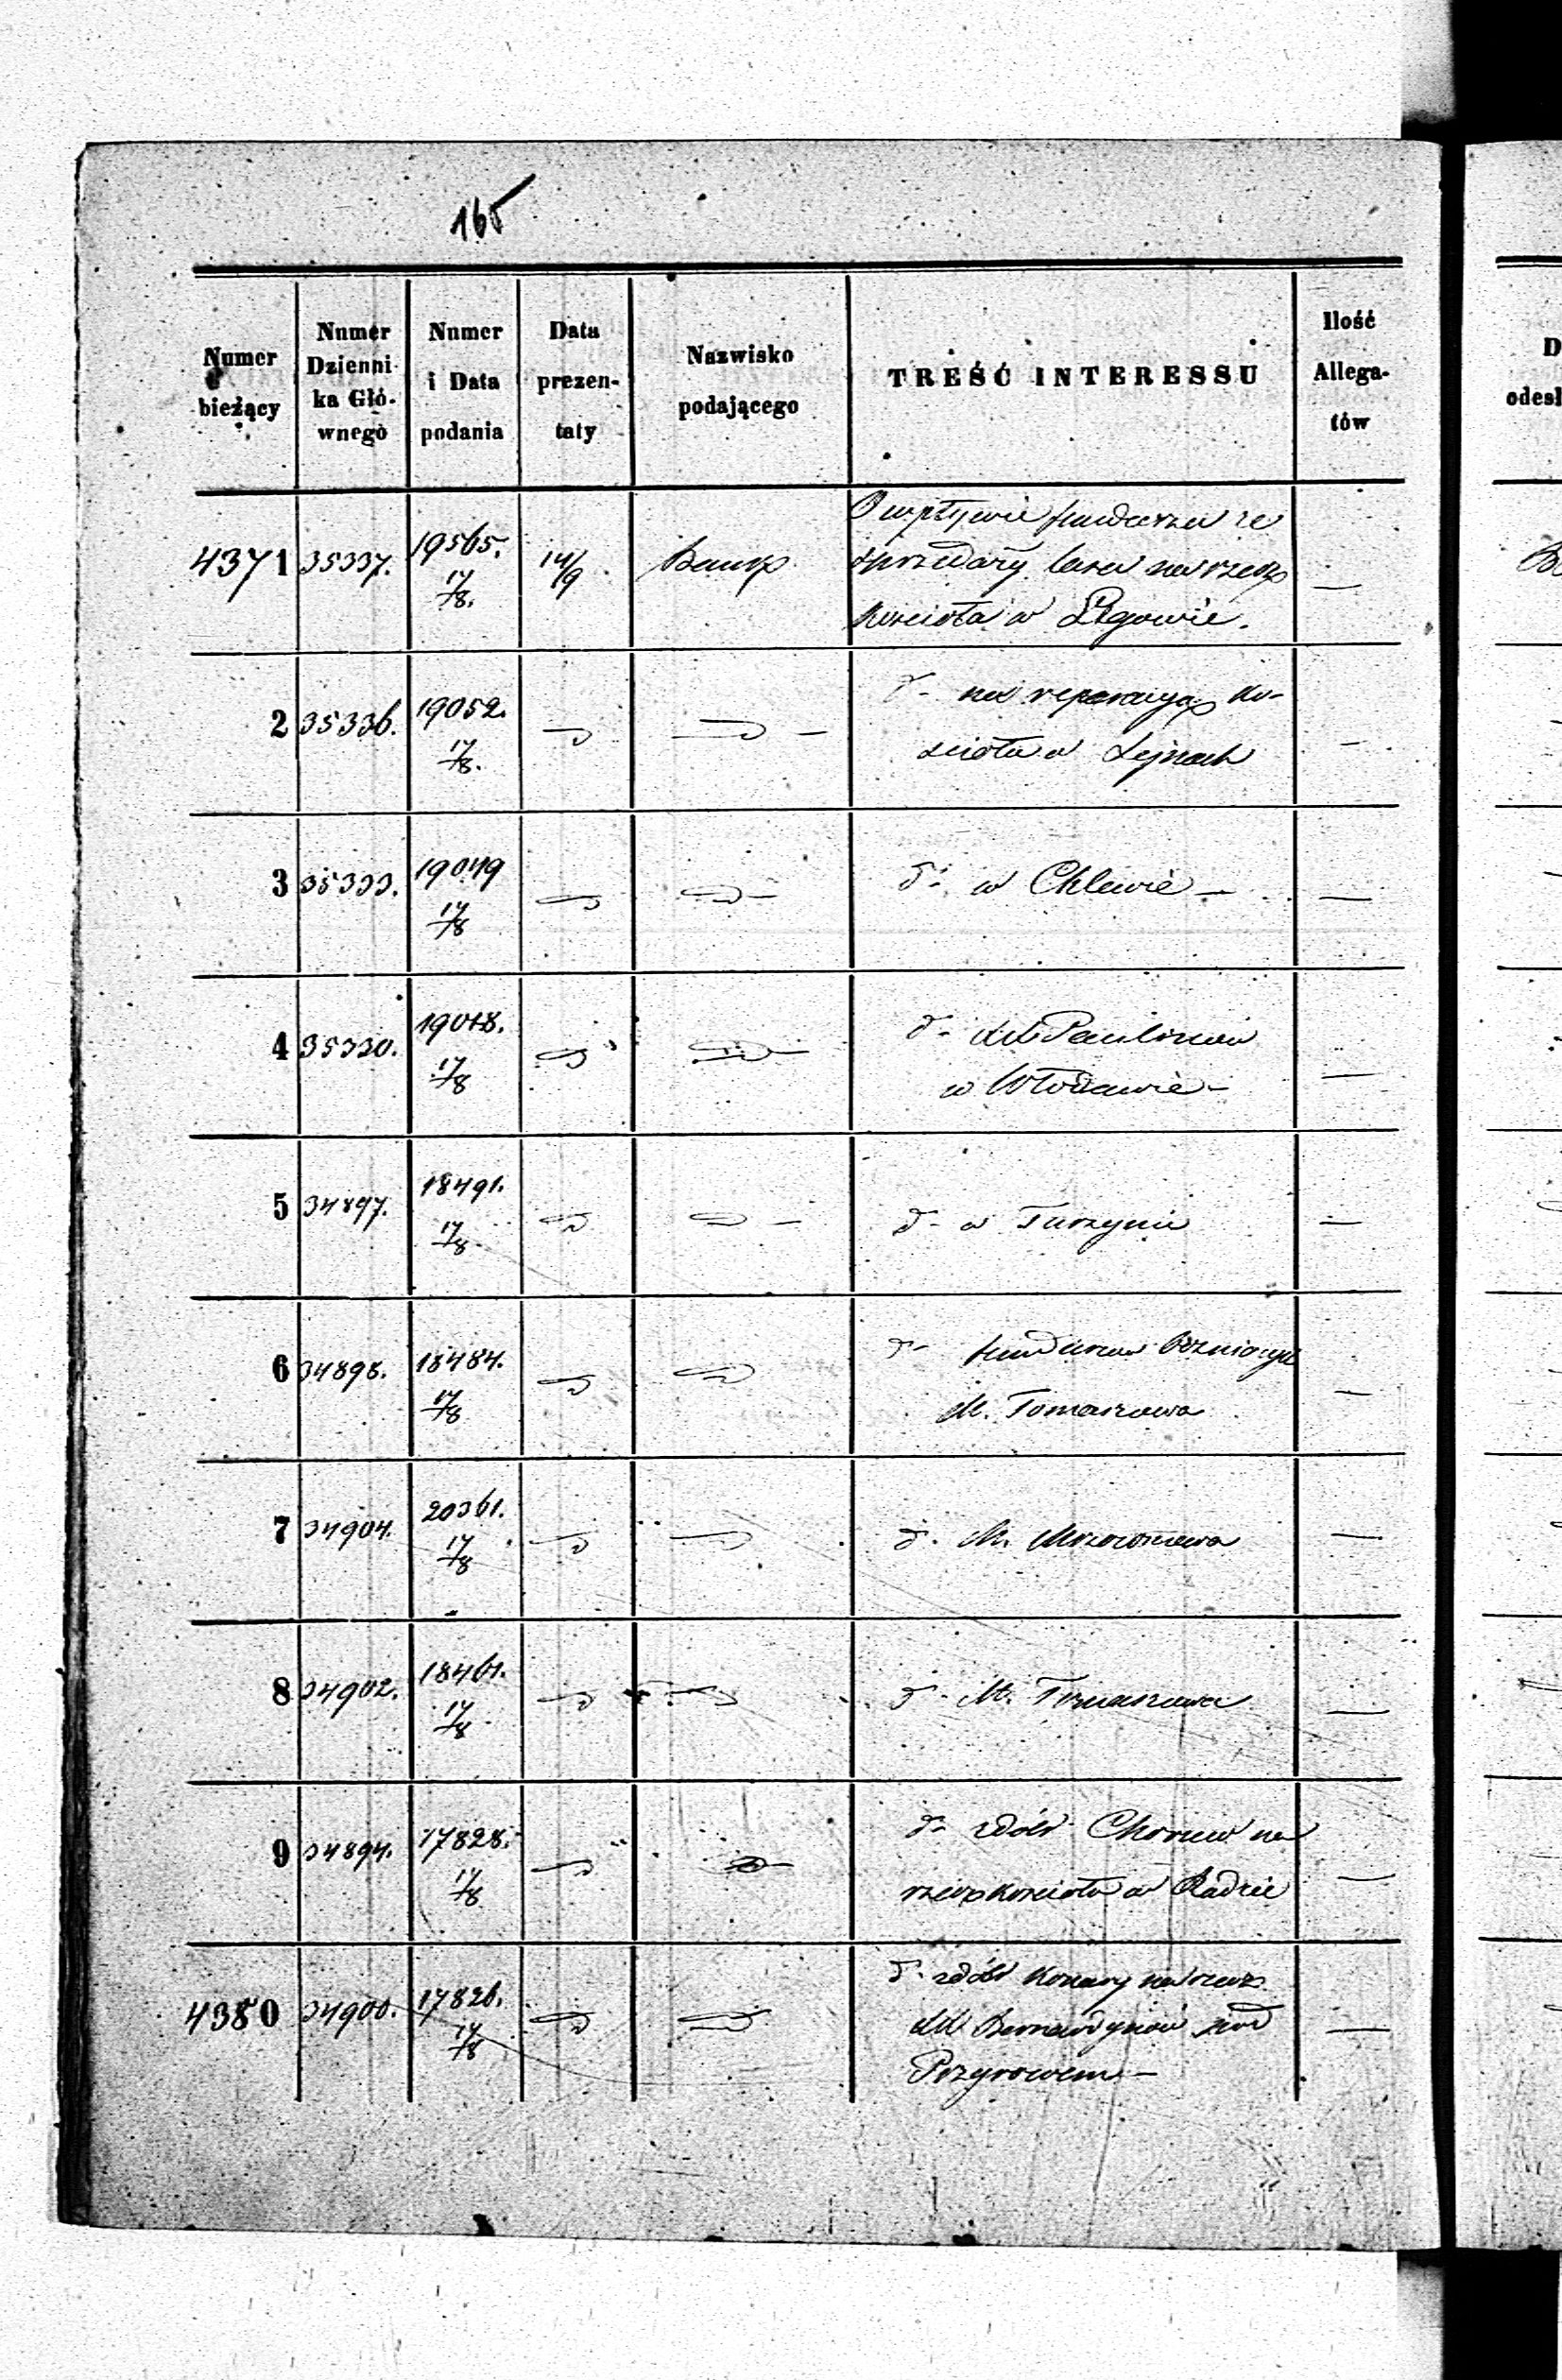 165
Numer bieżący | Numer Dzienni- ka Głó- wnego | Numer i Data podania | Data prezen- taty | Nazwisko podającego | TREŚĆ INTERESSU | Ilość Allega- tów
4371 35337. 19565. 17/8. 14/9 Bank O wpływie funduszu ze
sprzedaży lasu na rzecz
kościoła w Łęgowie.
2 35336. 19052. 17/8. d- na reperacyą ko-
ścioła w Lejnach
3 35333. 19049 17/8 d- w Chlewie —
4 35330. 19048. 17/8 d- XX Paulinów
w Włodawie -
5 34897. 18491. 17/8 d- w Turzynie
6 34898. 18484. 17/8 d- funduszu bóżniczego
M. Tomaszowa
7 34904. 20361. 17/8 d- M. Mrzowniewa
8 34902. 18461. 17/8 d- M. Tomaszowa
9 34894. 17828. 17/8 d- z dóbr na
rzecz kościoła w Radzie
4380 34900. 17826. 17/8 d- z dóbr Konary na rzecz
XX Bernardynów pod
Przyrowem —
D
odesł